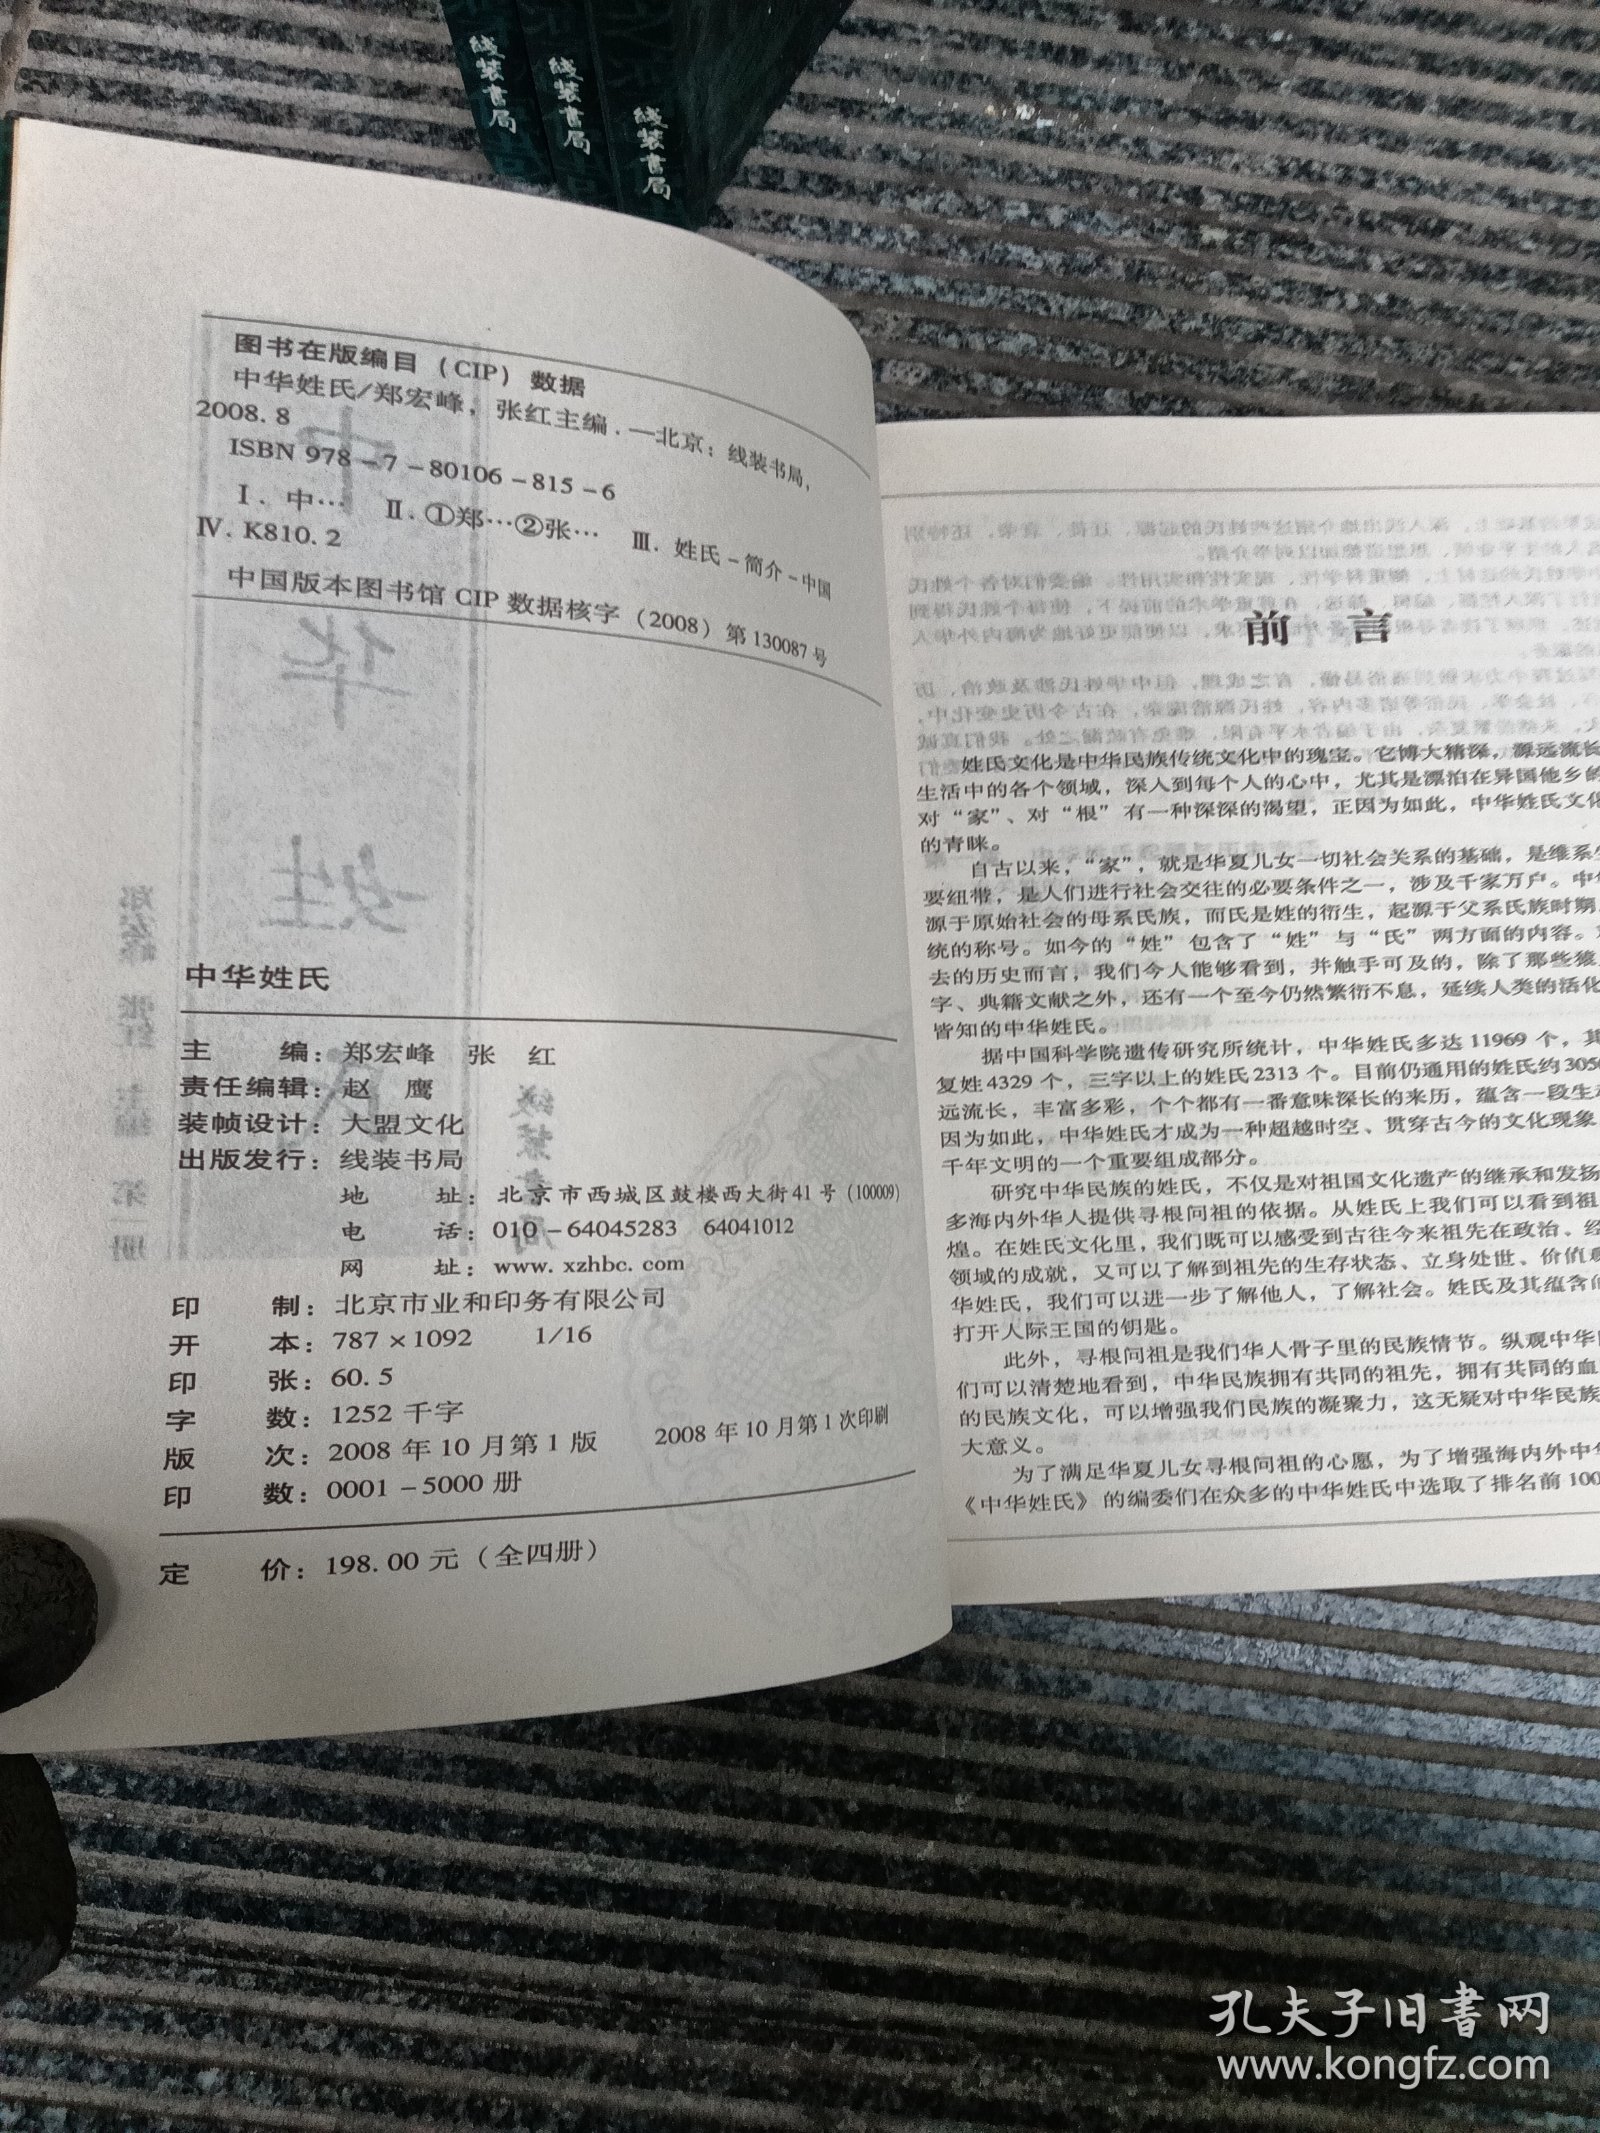 线装书局
线装书局
线装书局
图书在版编目（CIP）数据
中华姓氏/郑宏峰，张红主编．—北京：线装书局，
2008．8
ISBN 978－7－80106－815－6
Ⅰ．中… Ⅱ．①郑…②张… Ⅲ．姓氏－简介－中国
Ⅳ．K810．2
中国版本图书馆 CIP 数据核字（2008）第 130087 号
中华姓氏
主 编：郑宏峰 张 红
责任编辑：赵 鹰
装帧设计：大盟文化
出版发行：线装书局
地 址：北京市西城区鼓楼西大街 41 号（100009）
电 话：010－64045283 64041012
网 址：www．xzhbc．com
印 制：北京市业和印务有限公司
开 本：787×1092 1/16
印 张：60．5
字 数：1252 千字
版 次：2008 年 10 月第 1 版 2008 年 10 月第 1 次印刷
印 数：0001－5000 册
定 价：198．00 元（全四册）
前 言
姓氏文化是中华民族传统文化中的瑰宝。它博大精深，源远流长
生活中的各个领域，深入到每个人的心中，尤其是漂泊在异国他乡的
对“家”、对“根”有一种深深的渴望，正因为如此，中华姓氏文化
的青睐。
自古以来，“家”，就是华夏儿女一切社会关系的基础，是维系
要纽带，是人们进行社会交往的必要条件之一，涉及千家万户。中
源于原始社会的母系氏族，而氏是姓的衍生，起源于父系氏族时期
统的称号。如今的“姓”包含了“姓”与“氏”两方面的内容。
去的历史而言，我们今人能够看到，并触手可及的，除了那些猿
字、典籍文献之外，还有一个至今仍然繁衍不息，延续人类的活化
皆知的中华姓氏。
据中国科学院遗传研究所统计，中华姓氏多达 11969 个，其
复姓 4329 个，三字以上的姓氏 2313 个。目前仍通用的姓氏约 3050
远流长，丰富多彩，个个都有一番意味深长的来历，蕴含一段生
因为如此，中华姓氏才成为一种超越时空、贯穿古今的文化现象
千年文明的一个重要组成部分。
研究中华民族的姓氏，不仅是对祖国文化遗产的继承和发扬
多海内外华人提供寻根问祖的依据。从姓氏上我们可以看到祖
煌。在姓氏文化里，我们既可以感受到古往今来祖先在政治、经
领域的成就，又可以了解到祖先的生存状态、立身处世、价值观
华姓氏，我们可以进一步了解他人，了解社会。姓氏及其蕴含的
打开人际王国的钥匙。
此外，寻根问祖是我们华人骨子里的民族情节。纵观中华
们可以清楚地看到，中华民族拥有共同的祖先，拥有共同的血
的民族文化，可以增强我们民族的凝聚力，这无疑对中华民族
大意义。
为了满足华夏儿女寻根问祖的心愿，为了增强海内外中华
《中华姓氏》的编委们在众多的中华姓氏中选取了排名前 100
孔夫子旧书网
www.kongfz.com